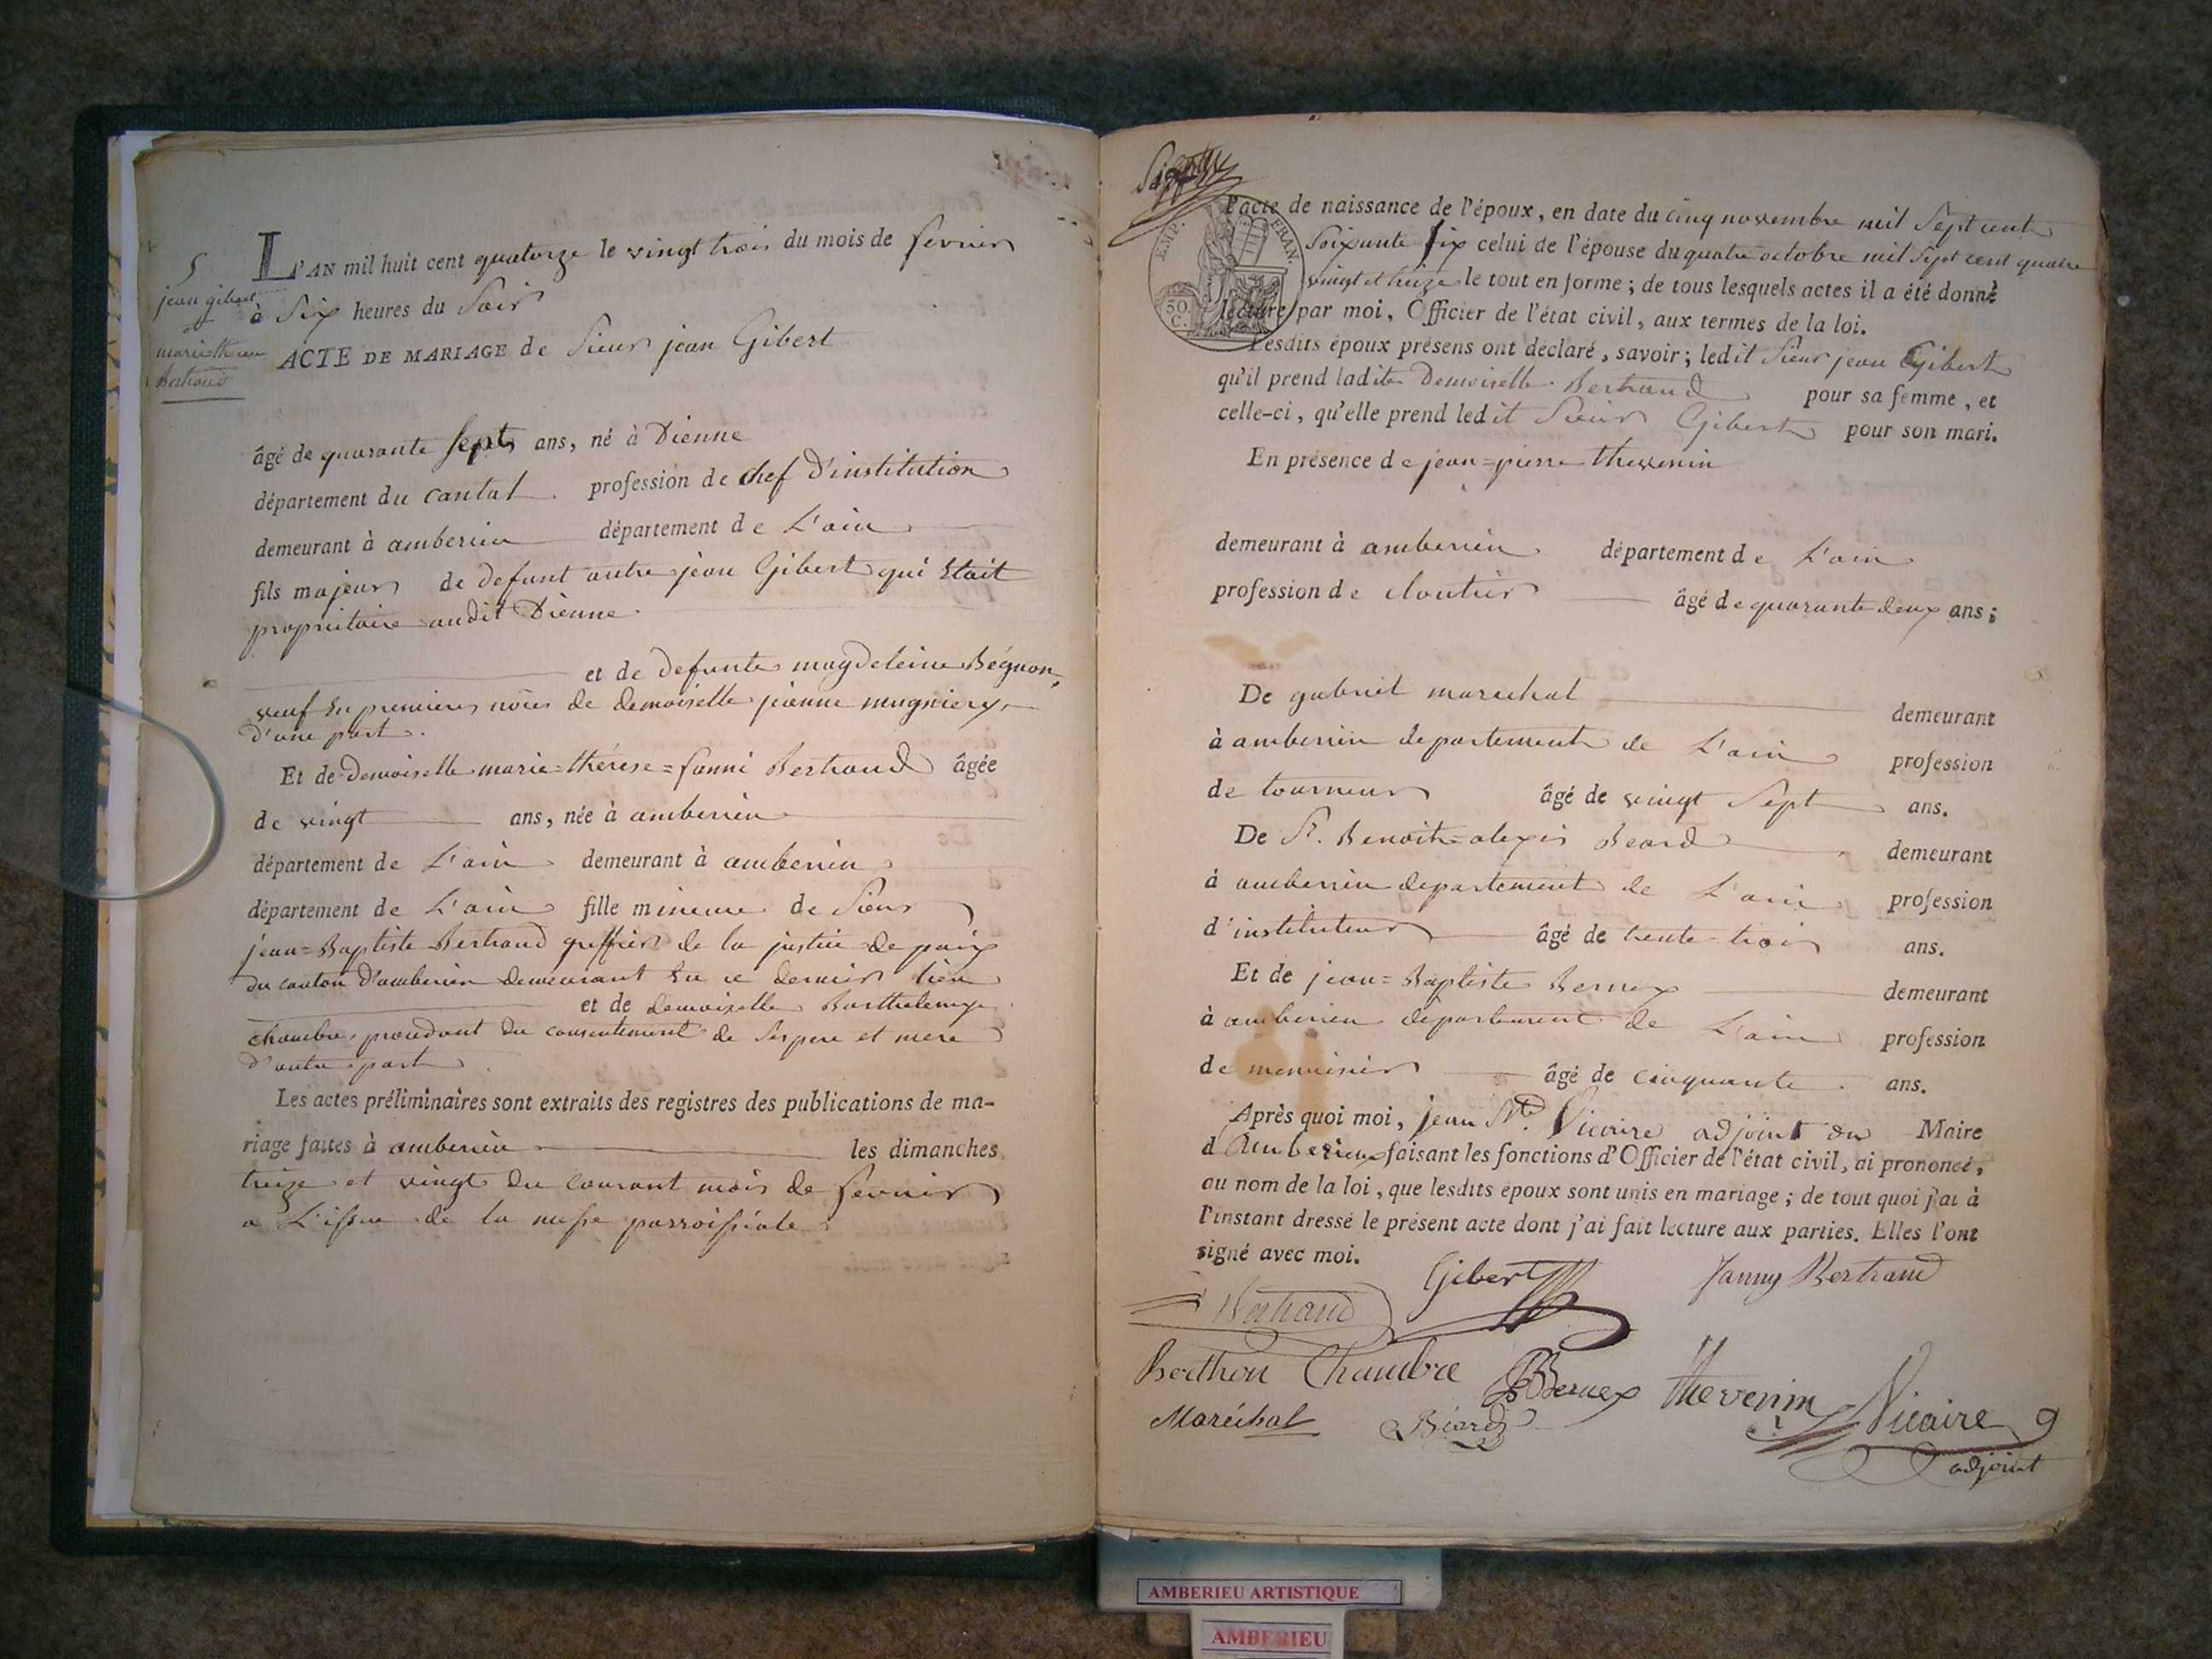 5
jean gibert
et
marie-therese
Bertrand
L'AN mil huit cent quatorze le vingt trois du mois de fevrier
à Six heures du Soir
ACTE DE MARIAGE de Sieur jean Gibert
âgé de quarante sept ans, né à Dienne
département du cantal profession de chef d'institution
demeurant à amberieu département de L'ain
fils majeur de defunt autre jean Gibert qui Etait
propriétaire audit Dienne
et de defunte magdeleine Bégnon,
veuf En premieres nôces de demoiselle jeanne mugniery
d'une part.
Et de Demoiselle marie=thérese=fanni Bertrand âgée
de vingt ans, née à amberieu
département de L'ain demeurant à amberieu
département de L'ain fille mineure de Sieur
jean=Baptiste Bertrand greffier de la justice de paix
du canton d'amberieu demeurant En ce dernier lieu
et de demoiselle Barthelemye
chambre, procedant du consentement de Ses pere et mere
d'autre part
Les actes préliminaires sont extraits des registres des publications de ma-
riage faites à amberieu les dimanches
treize et vingt du courant mois de fevrier
a L'issue de la messe parroissiale.
EMP. FRAN.
50
C.
l'acte de naissance de l'époux, en date du cinq novembre mil Sept cent
Soixante Six celui de l'épouse du quatre octobre mil Sept cent quatre
vingt et treize le tout en forme; de tous lesquels actes il a été donné
lecture par moi, Officier de l'état civil, aux termes de la loi.
Lesdits époux présens ont déclaré, savoir; ledit Sieur jean Gibert
qu'il prend ladite Demoiselle Bertrand pour sa femme, et
celle-ci, qu'elle prend ledit Sieur Gibert pour son mari.
En présence de jean=pierre thevenin
demeurant à amberieu département de L'ain
profession de cloutier âgé de quarante deux ans;
De gabriel marechal demeurant
à amberieu departement de L'ain profession
de tourneur âgé de vingt Sept ans.
De Sr. Benoit=alexis Beard demeurant
à amberieu departement de L'ain profession
d'instituteur âgé de trente trois ans.
Et de jean=Baptiste Bernex demeurant
à amberieu departement de L'ain profession
de menuisier âgé de cinquante ans.
Après quoi moi, jean Vicaire adjoint du Maire
d'Amberieux faisant les fonctions d'Officier de l'état civil, ai prononcé,
au nom de la loi, que lesdits époux sont unis en mariage; de tout quoi j'ai à
l'instant dressé le présent acte dont j'ai fait lecture aux parties. Elles l'ont
signé avec moi.
Gibert Fanny Bertrand
Bertrand
Berthon Chambre Bernex Thevenin Vicaire
Maréchal Béard adjoint
AMBERIEU ARTISTIQUE
AMBERIEU